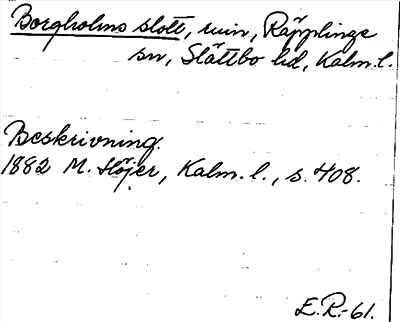 Borgholms slott, ruin, Räpplinge
sn, Slättbo hd, Kalm. l.
Beskrivning.
1882 M. Höjer, Kalm. l., s. 408.
E.R.-61.